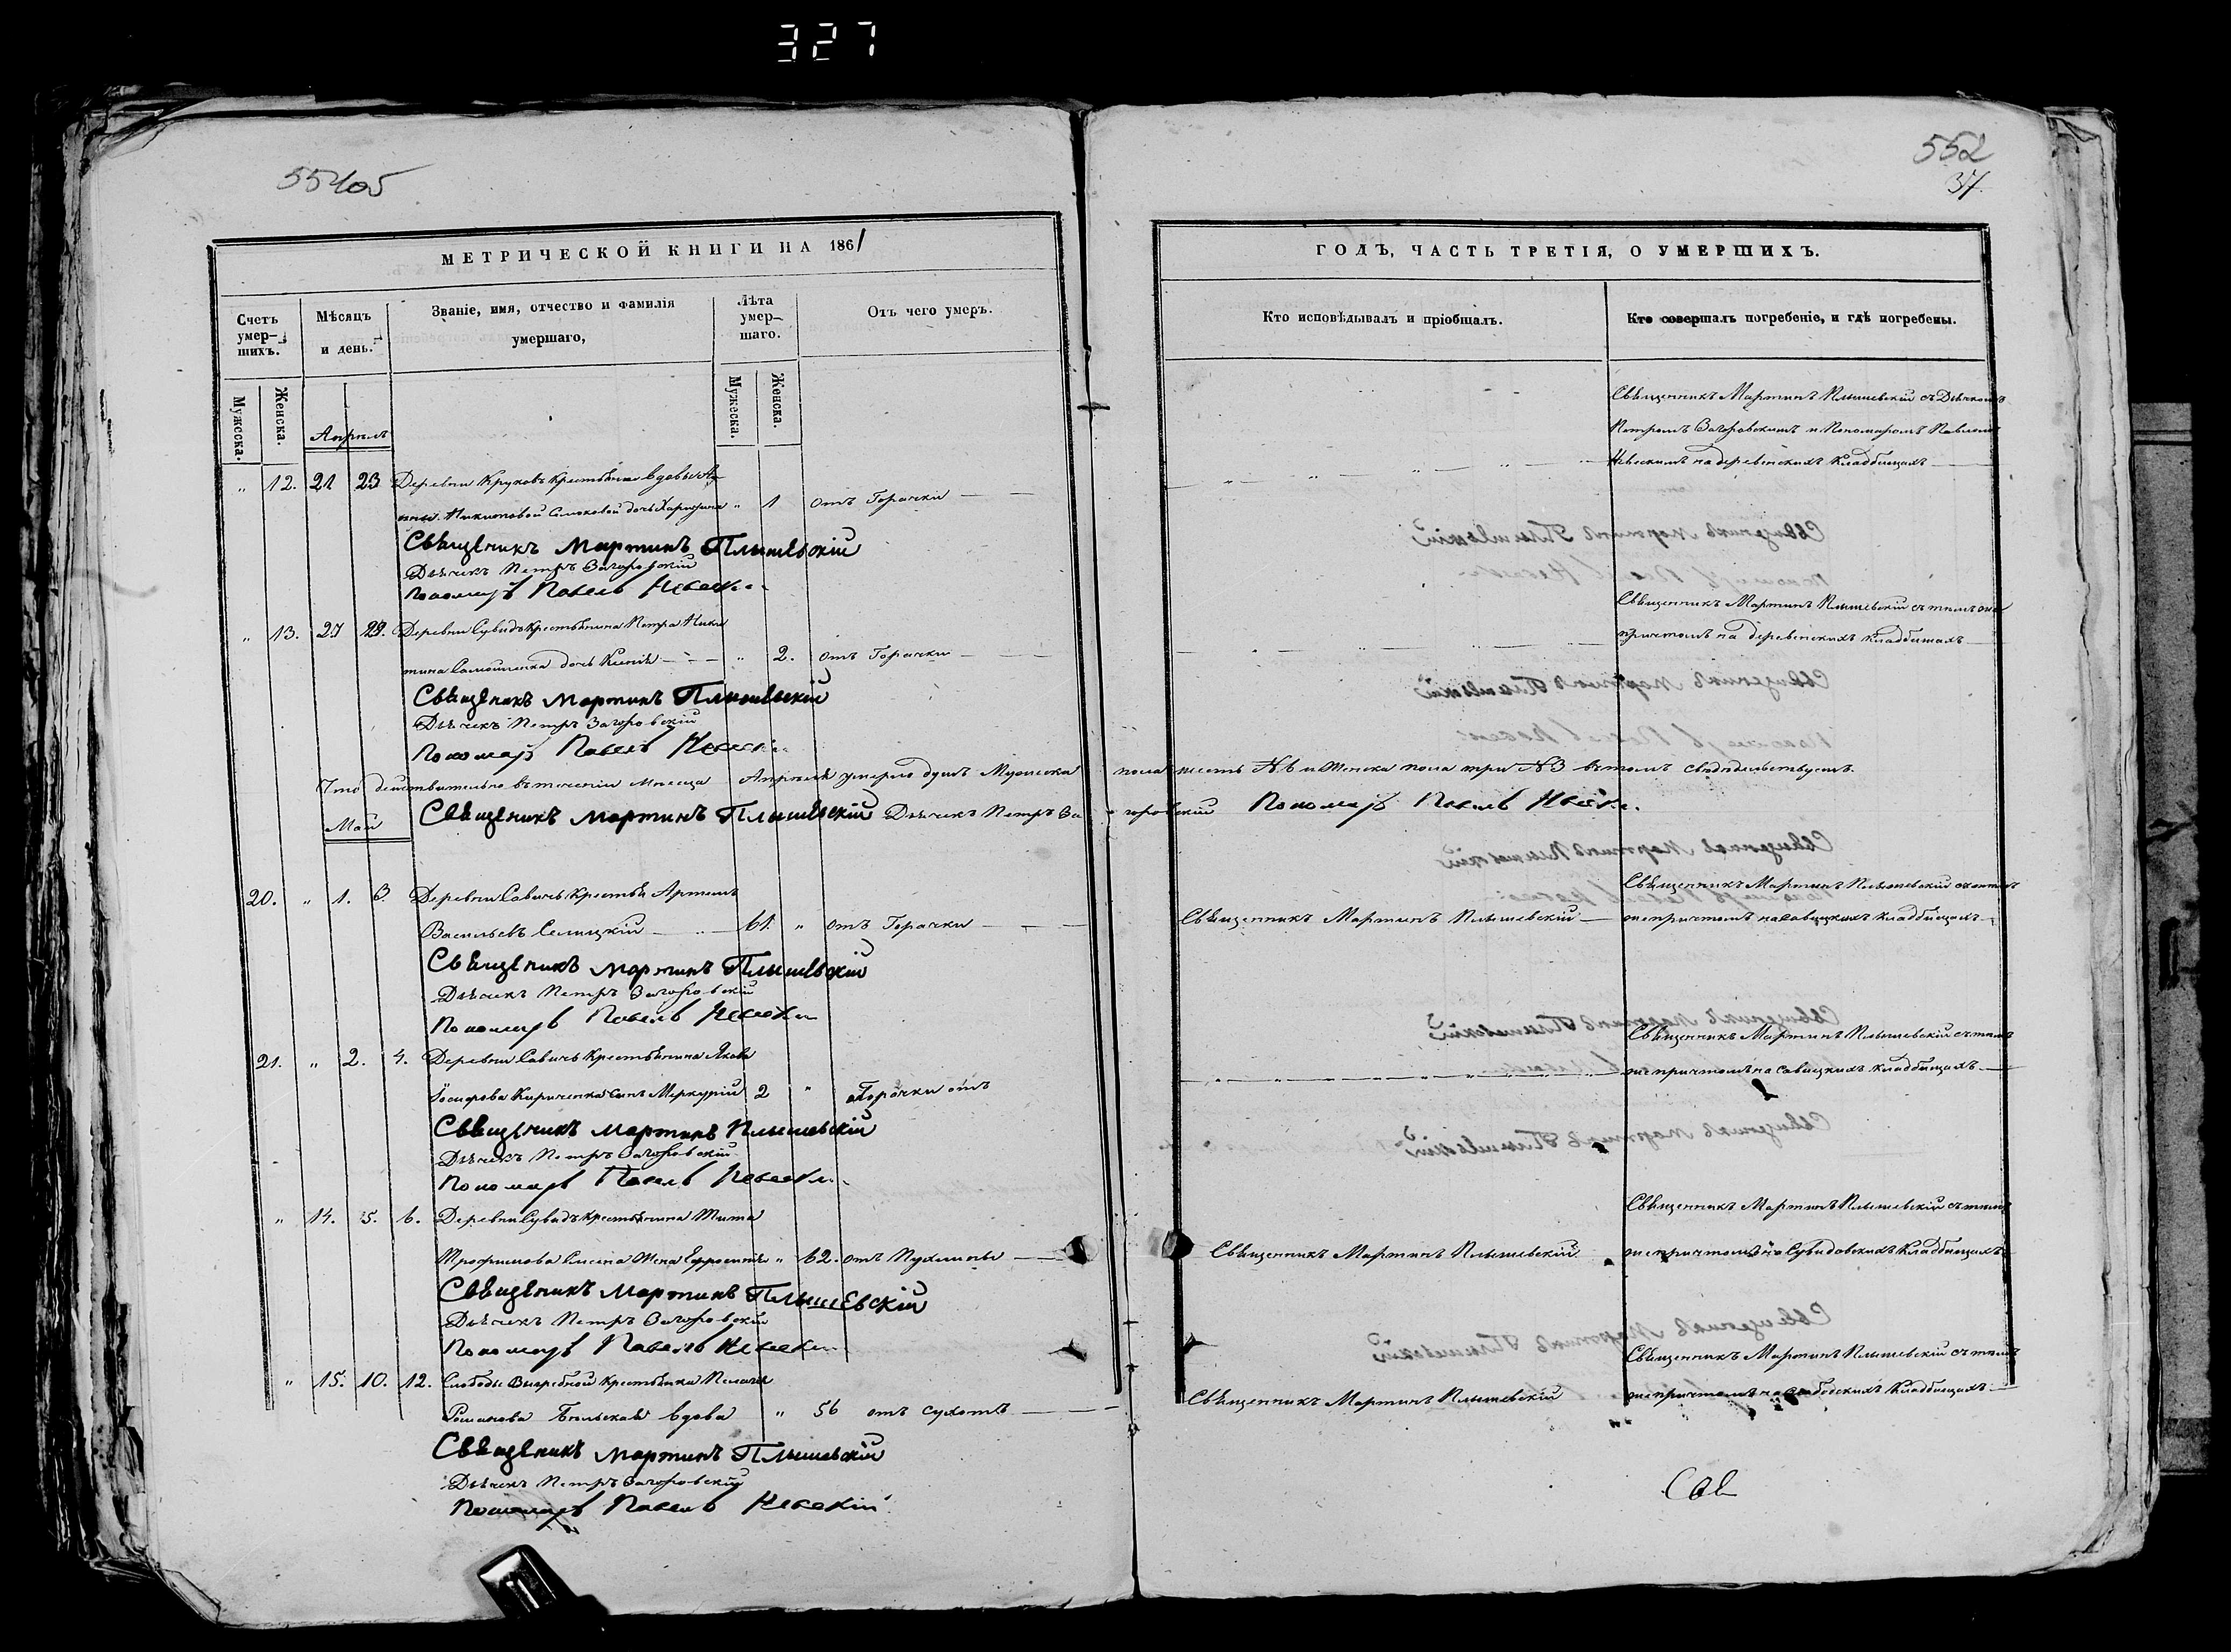 327
552
37
МЕТРИЧЕСКОЙ КНИГИ НА 1861
Счетъ умер-шихъ.
Мѣсяцъ и день.
Званіе, имя, отчество и фамилія умершаго,
Лѣта умер-шаго.
Отъ чего умеръ.
Мужеска.
Женска.
Мужеска.
Женска.
Апрѣль
" 12. 21 23 Деревни Круковъ Крестьянки вдовы
Никитовой дочь " 1 отъ Горячки
Священникъ Мартинъ Плышевскій
Дьячекъ Петръ Загоровскій
Пономарь Павелъ Невскій
" 13. 27 29. Деревни Сувидъ Крестьянина Петра Ники
тина Самойленка дочь Ксенія " 2. отъ Горячки
Священникъ Мартинъ Плышевскій
Дьячекъ Петръ Загоровскій
Пономарь Павелъ Невскій
Что действительно въ теченіи месяца Апреля умерло душъ Мужеска
Священникъ Мартинъ Плышевскій Дьячекъ Петръ За
Май
20. " 1. 3. Деревни Савичь Крестьян Артемъ
Васильевъ Селицкій 61. " отъ Горячки
Священникъ Мартинъ Плышевскій
Дьячекъ Петръ Загоровскій
Пономарь Павелъ Невскій
21. " 2. 4. Деревни Савичь Крестьянина Якова
Іосифова Кириченка сынъ Меркурій 2 " Горячки отъ
Священникъ Мартинъ Плышевскій
Дьячекъ Петръ Загоровскій
Пономарь Павелъ Невскій
" 14. 5. 6. Деревни Сувидъ Крестьянина Тита
Трофимова жена Ефросинія " 62. отъ Пухлины
Священникъ Мартинъ Плышевскій
Дьячекъ Петръ Загоровскій
Пономарь Павелъ Невскій
" 15. 10. 12. Слободы Выгребной Крестьянка Пелагія
Романова Бѣльская вдова " 56 отъ Сухотъ
Священникъ Мартинъ Плышевскій
Дьячекъ Петръ Загоровскій
Пономарь Павелъ Невскій
ГОДЪ, ЧАСТЬ ТРЕТІЯ, О УМЕРШИХЪ.
Кто исповѣдывалъ и пріобщалъ.
Кто совершалъ погребеніе, и гдѣ погребены.
Священникъ Мартинъ Плышевскій съ Дьячкомъ
Петромъ Загоровскимъ и Пономаромъ Павломъ
Невскимъ на деревенскихъ кладбищахъ
Священникъ Мартинъ Плышевскій съ тѣмъ же
причтомъ на деревенскихъ кладбищахъ
пола шесть №6 и Женска пола три №3 въ томъ свидѣтельствуемъ.
горовскій Пономарь Павелъ Невскій
Священникъ Мартинъ Плышевскій
Священникъ Мартинъ Плышевскій
же причтомъ на Савицкихъ кладбищахъ
Священникъ Мартинъ Плышевскій съ тѣмъ
же причтомъ на Савицкихъ кладбищахъ
Священникъ Мартинъ Плышевскій съ тѣмъ
Священникъ Мартинъ Плышевскій
же причтомъ на Сувидовскихъ кладбищахъ
Священникъ Мартинъ Плышевскій съ тѣмъ
Священникъ Мартинъ Плышевскій
же причтомъ на слабодскихъ кладбищахъ